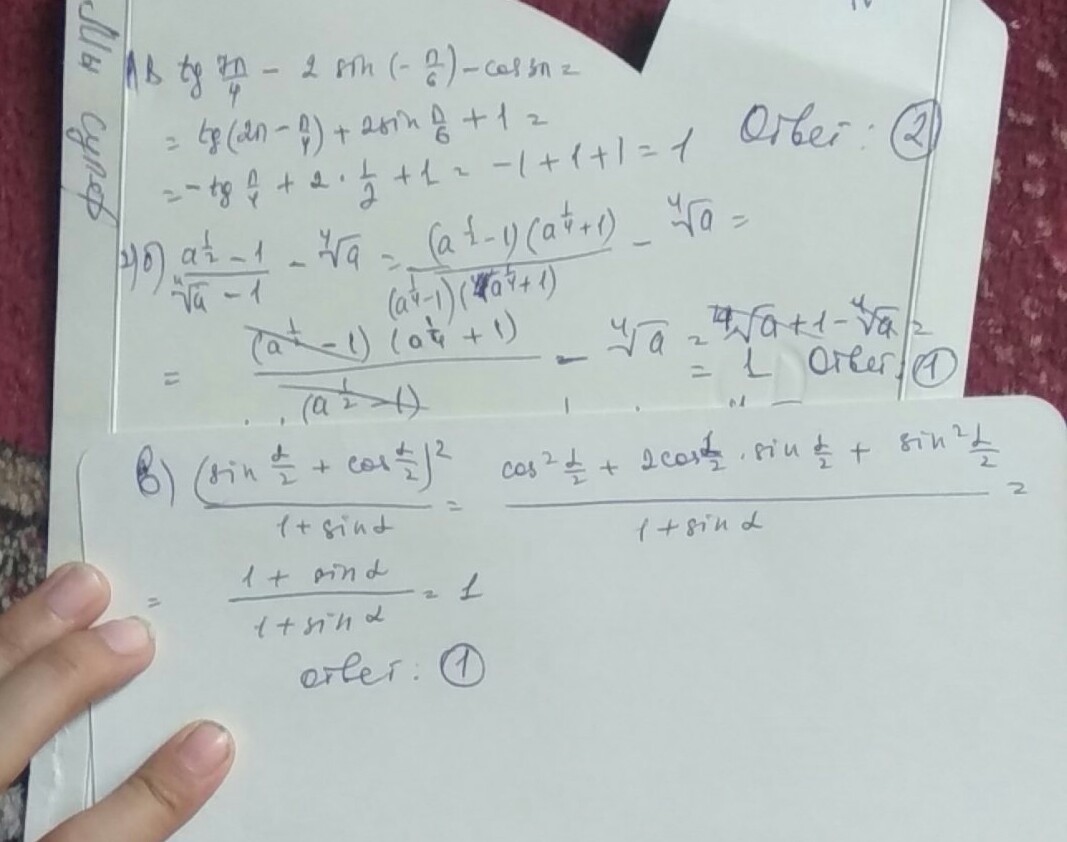 Мы супер
1в tg 7π/4 - 2 sin (-π/6) - cos 3π =
= tg(2π - π/4) + 2sin π/6 + 1 =
= -tg π/4 + 2 · 1/2 + 1 = -1 + 1 + 1 = 1 Ответ: 2
2)б) (a^1/2 - 1)/(⁴√a - 1) - ⁴√a = (a^1/2 - 1)(a^1/4 + 1)/((a^1/4 - 1)(a^1/4 + 1)) - ⁴√a =
= (a^1/2 - 1)(a^1/4 + 1)/(a^1/2 - 1) - ⁴√a = ⁴√a + 1 - ⁴√a =
= 1 Ответ: 1
в) (sin α/2 + cos α/2)²/(1 + sin α) = (cos² α/2 + 2cos α/2 · sin α/2 + sin² α/2)/(1 + sin α) =
= (1 + sin α)/(1 + sin α) = 1
ответ: 1